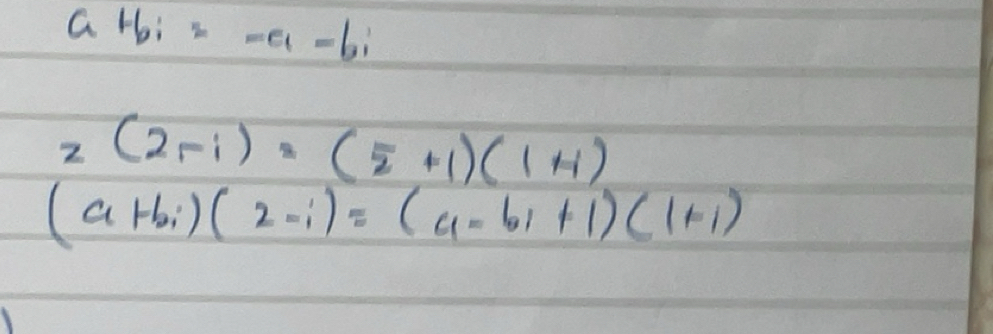 a+bi = -a-bi
z(2-i) = (z̄+1)(1+i)
(a+bi)(2-i) = (a-bi+1)(1+i)
)